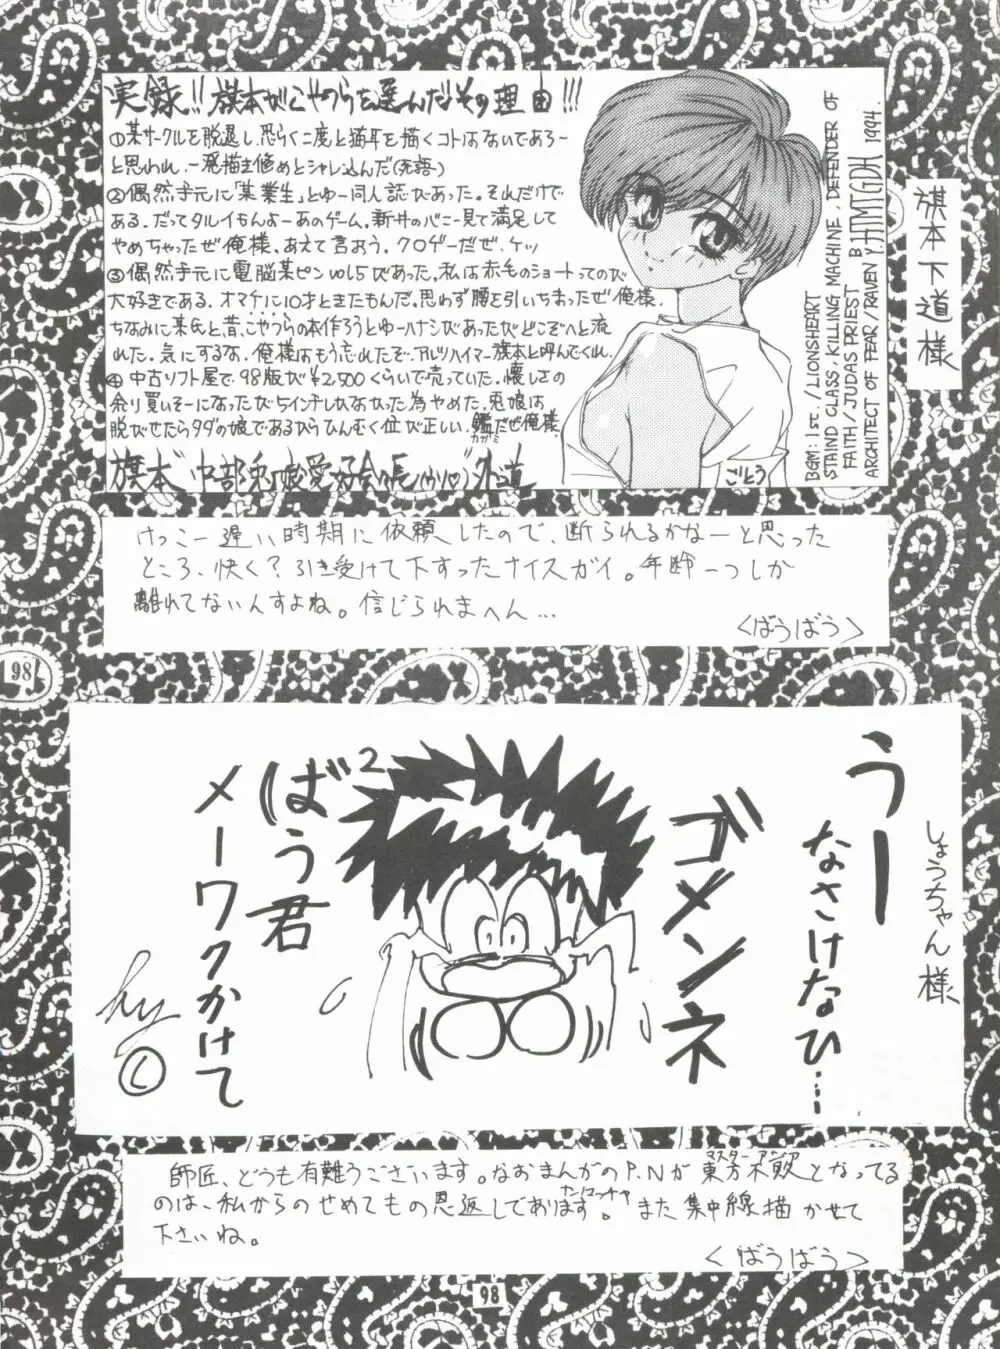 実録!! 旗本がこやつらを選んだその理由!!!
①某サークルを脱退し、恐らく二度と猫耳を描くコトはないであろー
と思われ、一発描き修めとシャレ込んだ(死語)
②偶然手元に「某業生」とゆー同人誌があった。それだけで
ある。だってタルイもんよーあのゲーム。新サのバニー見て満足して
やめちゃったぜ俺様、あえて言おう。クロゲーだぜ、ケッ
③偶然手元に電脳某ピンvol5があった。私は赤毛のショートってのが
大好きである。オマケに10才ときたもんだ。思わず腰を引いちまったぜ俺様。
ちなみに某氏と昔、こやつらの本作ろうとゆーハナシがあったがどこぞへと流
れた。気にするな。俺様はもう忘れたぞ。アルツハイマー旗本と呼んでくれ。
④中古ソフト屋で98版が¥2,500くらいで売っていた。懐しさの
余り買いそーになったが5インチしかなかった為やめた。兎娘は
脱がせたらタダの娘であるからひんむく位が正しい。鑑だぜ俺様
カガミ
旗本 外道
ごとう
BGM: 1st. / LIONSHEART
STAND CLASS KILLING MACHINE DEFENDER OF
FAITH / JUDAS PRIEST
ARCHITECT OF FEAR / RAVEN
BY.HMTGDH
1994.
旗本下道様
けっこー遅い時期に依頼したので、断られるかなーと思った
ところ、快く?引き受けて下すったナイスガイ。年齢一つしか
離れてないんすよね。信じられまへん…
<ばうばう>
98
しょうちゃん様
うー
なさけなひ…
ゴメンネ
ばう²君
メーワクかけて
hy
©
師匠、どうも有難うございます。なおまんがのP.Nが東方不敗となってる
マスターアジア
のは、私からのせめてもの恩返しであります。また集中線描かせて
ナンコッチャ
下さいね。
<ばうばう>
98